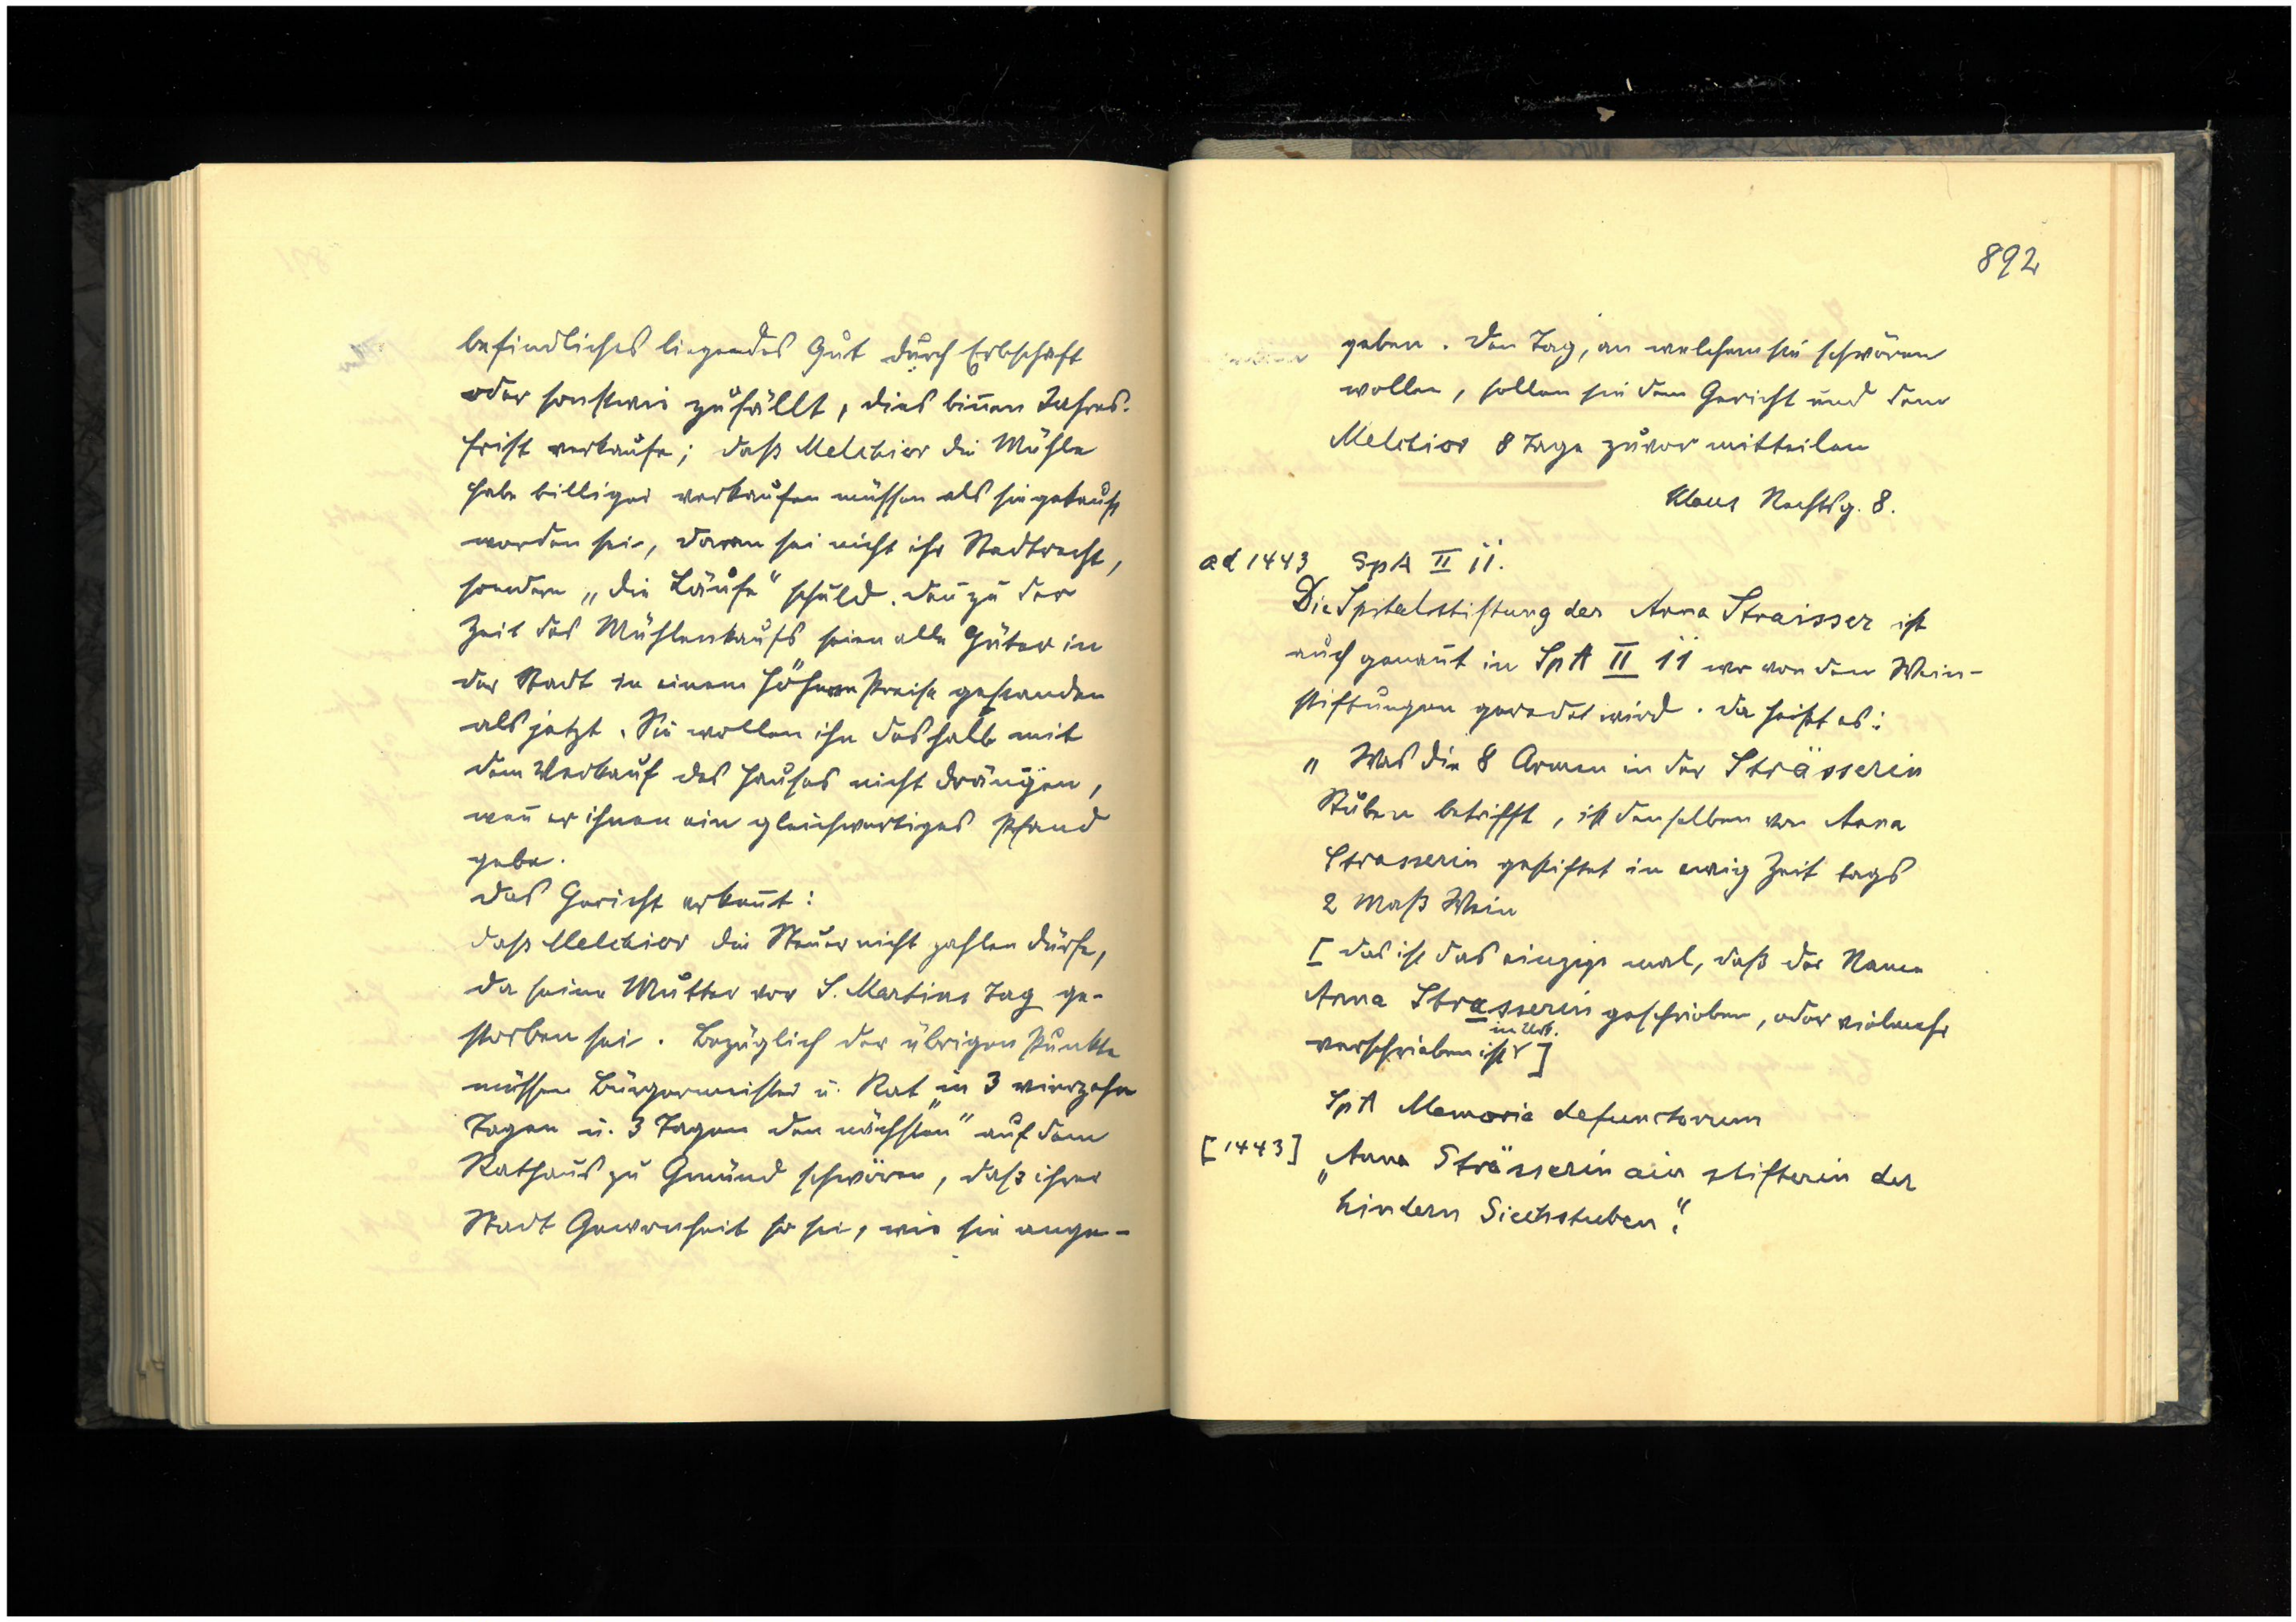 befindliches liegendes Gut durch Erbschaft
oder sonstwie zufällt, dies binnen Jahres-
frist verkaufe; daß Melchior die Mühle
habe billiger verkaufen müssen als sie gekauft
worden sei, daran sei nicht ihr Stadtrecht,
sondern „die Läufe" schuld. Den̄ zu der
Zeit des Mühlenkaufs seien alle Güter in
der Stadt in einem höheren Preise gestanden
als jetzt. Sie wollen ihn deshalb mit
dem Verkauf des Hauses nicht drängen,
wen̄ er ihnen ein gleichwertiges Pfand
gebe.
Das Gericht erken̄t:
daß Melchior die Steuer nicht zahlen dürfe,
da seine Mutter vor S. Martins Tag ge-
storben sei. Bezüglich der übrigen Punkte
müssen Bürgermeister u. Rat in 3 vierzehn
Tagen u. 3 Tagen „den nächsten" auf dem
Rathaus zu Gmünd schwören, daß ihrer
Stadt Gewonheit so sei, wie sie ange-
892
geben. Den Tag, an welchem sie schwören
wollen, sollen sie dem Gericht und dem
Melchior 8 Tage zuvor mitteilen
Klaus Rechtsg. 8.
ad 1443 SpA II 11.
Die Spitalstiftung der Anna Straisser ist
auch genan̄t in SpA II 11 wo von den Wein-
stiftungen geredet wird. Da heißt es:
„Was die 8 Armen in der Strässerin
Stuben betrifft, ist denselben von Anna
Strasserin gestiftet in ewig Zeit tags
2 Maß Wein
[Das ist das einzige mal, daß der Name
Anna Strasserin geschrieben, oder vielmehr
in Urk.
verschrieben ist]
SpA Memoria defunctorum
[1443] „Anna Strässerin ain stifterin der
hindern Siechstuben."